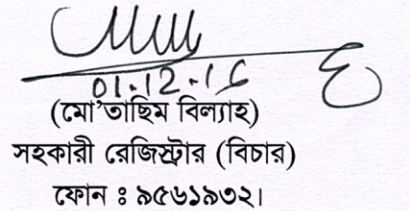 01.12.16
(মো'তাছিম বিল্যাহ)
সহকারী রেজিস্ট্রার (বিচার)
ফোন ঃ ৯৫৬১৯৩২।